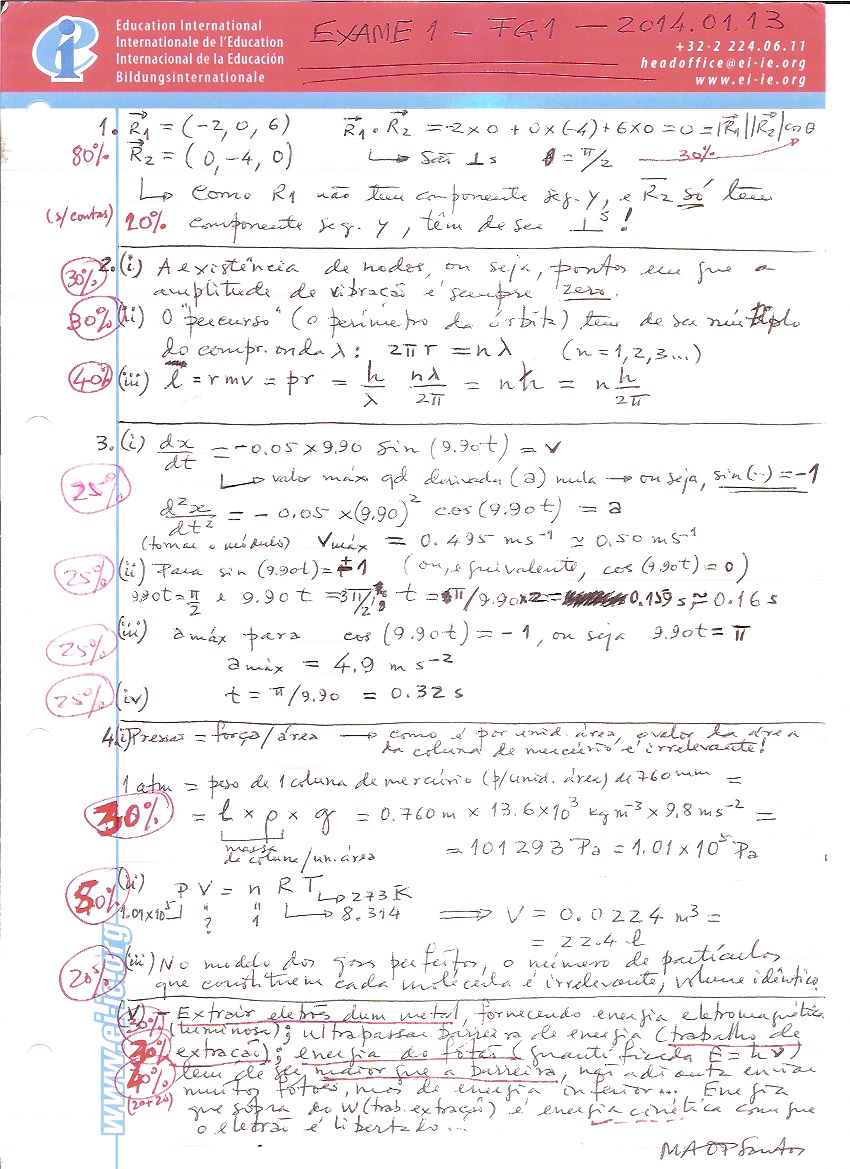 Education International
Internationale de l'Education
Internacional de la Educación
Bildungsinternationale
EXAME 1 - FG1 - 2014.01.13
+32-2 224.06.11
headoffice@ei-ie.org
www.ei-ie.org
1. R1 = (-2, 0, 6) R1 . R2 = -2×0 + 0×(-4) + 6×0 = 0 = |R1||R2| cos θ
80% R2 = (0, -4, 0) ↳ São ⊥s θ = π/2 30%
↳ Como R1 não tem componente seg. y, e R2 só tem
(s/contas) 20% componente seg. y, têm de ser ⊥s!
30% 2. (i) A existência de nodos, ou seja, pontos em que a
amplitude de vibração é sempre zero.
30% (ii) O "percurso" (o perímetro da órbita) tem de ser múltiplo
do compr. onda λ: 2πr = nλ (n = 1, 2, 3...)
40% (iii) l = rmv = pr = h/λ nλ/2π = nħ = n h/2π
3. (i) dx/dt = -0.05 × 9.90 sin (9.90t) = v
25% ↳ valor máx qd derivada (a) nula → ou seja, sin(..) = -1
d²x/dt² = -0.05 × (9.90)² cos (9.90t) = a
(tomar o módulo) vmáx = 0.495 ms⁻¹ ≃ 0.50 ms⁻¹
25% (ii) Para sin (9.90t) = ±1 (ou, equivalente, cos (9.90t) = 0)
9.90t = π/2 e 9.90t = 3π/2; t = π/9.90×2 = 0.159 s ≈ 0.16 s
25% (iii) amáx para cos (9.90t) = -1, ou seja 9.90t = π
amáx = 4.9 m s⁻²
25% (iv) t = π/9.90 = 0.32 s
4. (i) Pressão = força/área → como é por unid. área, o valor da área
da coluna de mercúrio é irrelevante!
1 atm = peso de 1 coluna de mercúrio (p/unid. área) de 760 mm =
30% = h × ρ × g = 0.760 m × 13.6×10³ kg m⁻³ × 9.8 ms⁻² =
massa
de coluna/un. área = 101293 Pa = 1.01 × 10⁵ Pa
50% (ii) P V = n R T ↳ 273 K
1.01×10⁵ ? 1 ↳ 8.314 ⟹ V = 0.0224 m³ =
= 22.4 l
20% (iii) No modelo dos gases perfeitos, o número de partículas
que constituem cada molécula é irrelevante, volume idêntico.
30% (V) - Extrair eletrões dum metal, fornecendo energia eletromagnética
(luminosa); ultrapassar barreira de energia (trabalho de
30% extração); energia do fotão (quantificada E = hν)
40% tem de ser maior que a barreira, não adianta enviar
(20+20) muitos fotões, mas de energia inferior... Energia
que sobra do W (trab. extração) é energia cinética com que
o eletrão é libertado...
www.ei-ie.org